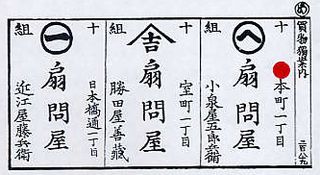 買物獨案内
十組
本町一丁目
扇問屋
小泉屋五郎兵衛
十組
吉
室町一丁目
扇問屋
勝田屋善藏
十組
一
日本橋通一丁目
扇問屋
近江屋藤兵衛